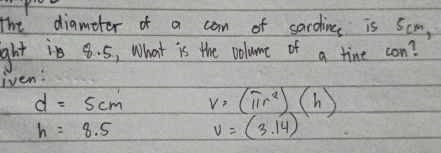 The diameter of a can of sardines is 5cm,
ght is 8.5, What is the volume of a tine con?
iven:
d = 5cm V = (πr²) (h)
h = 8.5 v = (3.14)